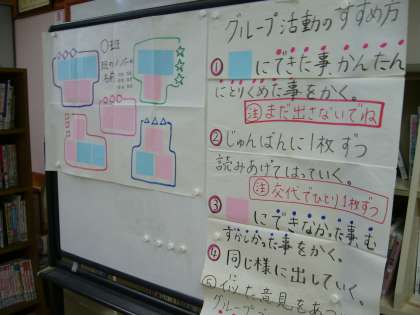 グループ活動のすすめ方
① にできた事、かんたん
にとりくめた事をかく。
注 まだ出さないでね
② じゅんばんに1枚ずつ
読みあげてはっていく。
注 交代でひとり1枚ずつ
③ にできなかった事、む
ずかしかった事をかく。
④ 同じ様に出していく。
⑤ 似た意見をあつ
グループ
○班